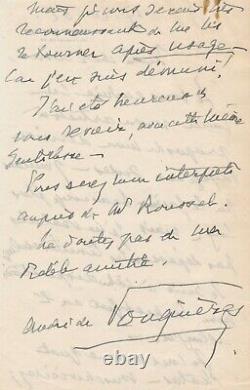 mais je vous serais très
reconnaissant de me les
retourner après usage
car j'en suis démuni.
J'ai été heureux de
vous revoir, avec cette même
gentillesse
Vous serez mon interprète
auprès de M. Roussel.
Ne doutez pas de ma
fidèle amitié.
André de Fouquières